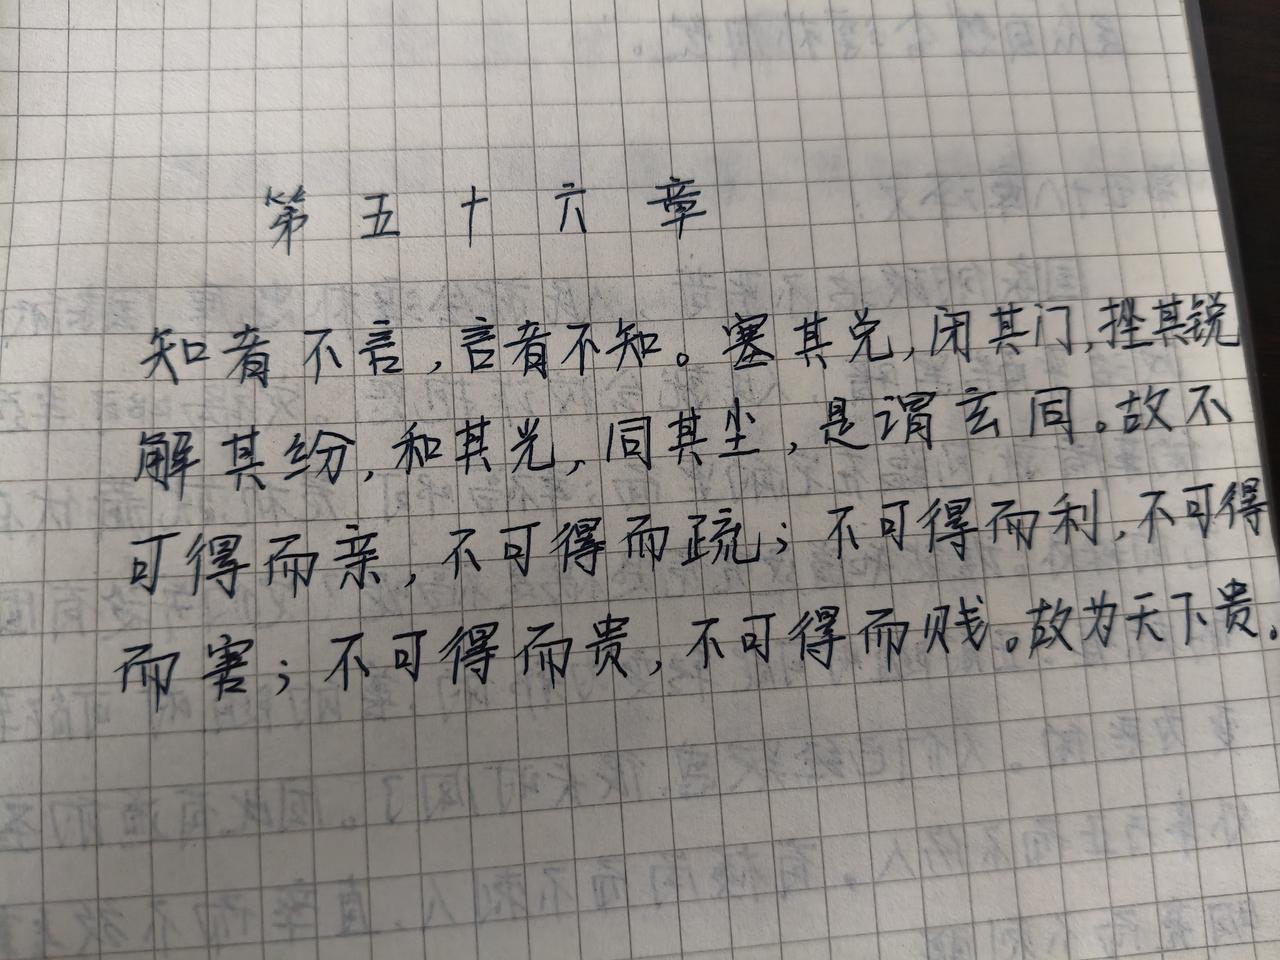 第五十六章
知者不言,言者不知。塞其兑,闭其门,挫其锐
解其纷,和其光,同其尘,是谓玄同。故不
可得而亲,不可得而疏;不可得而利,不可得
而害;不可得而贵,不可得而贱。故为天下贵。